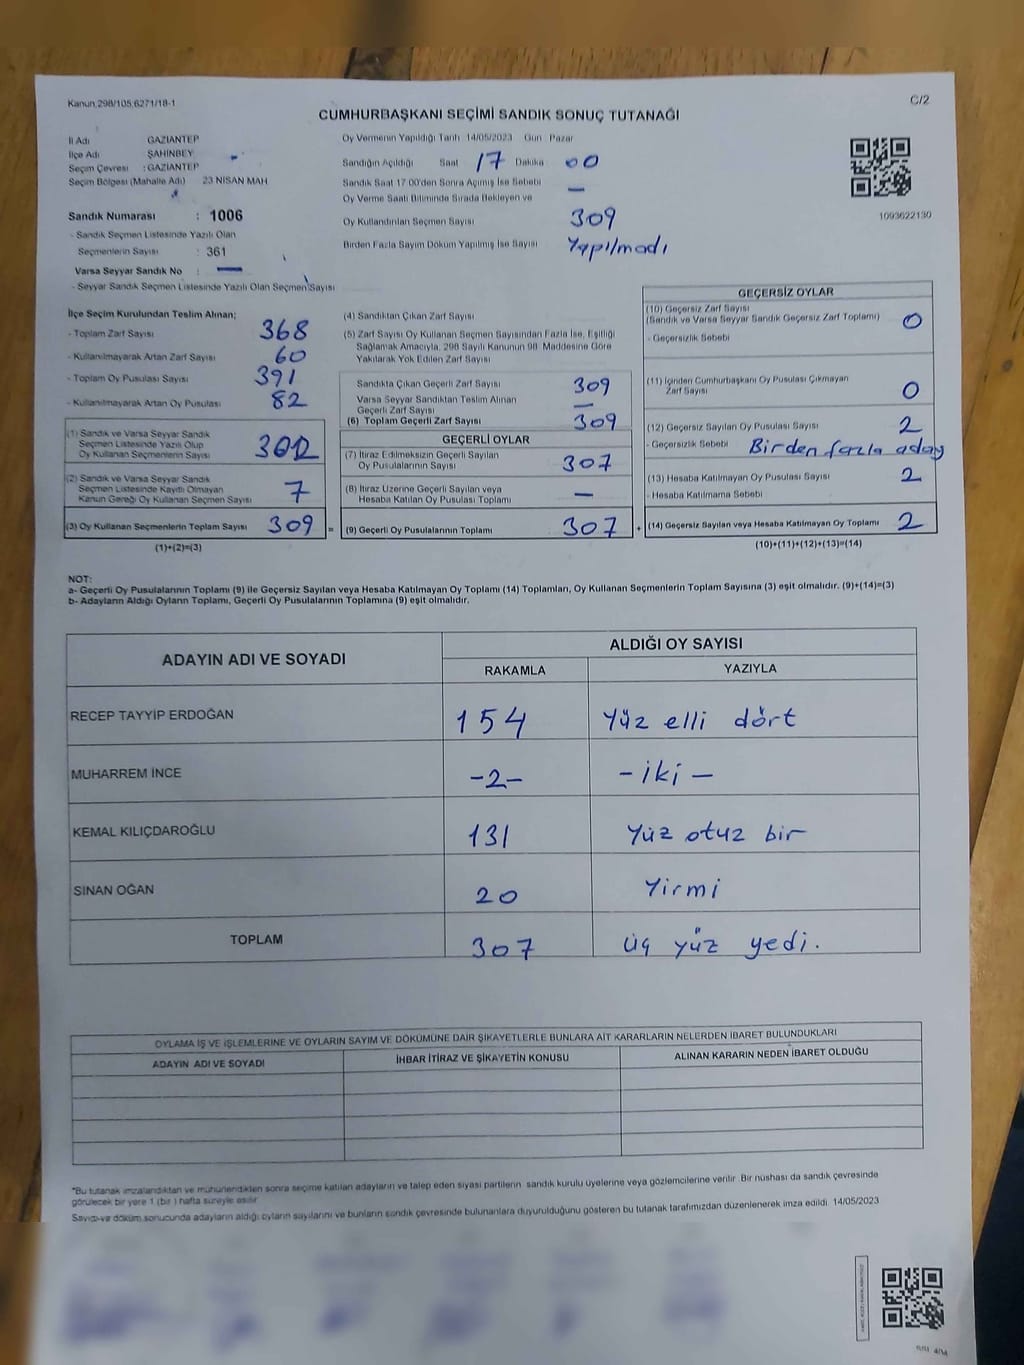 Kanun,298/105,6271/18-1
C/2
CUMHURBAŞKANI SEÇİMİ SANDIK SONUÇ TUTANAĞI
İl Adı GAZİANTEP
İlçe Adı ŞAHİNBEY
Seçim Çevresi : GAZİANTEP
Seçim Bölgesi (Mahalle Adı) 23 NİSAN MAH
Sandık Numarası : 1006
- Sandık Seçmen Listesinde Yazılı Olan
Seçmenlerin Sayısı : 361
Varsa Seyyar Sandık No : —
- Seyyar Sandık Seçmen Listesinde Yazılı Olan Seçmen Sayısı
Oy Vermenin Yapıldığı Tarih 14/05/2023 Gün : Pazar
Sandığın Açıldığı Saat 17 Dakika 00
Sandık Saat 17 00'den Sonra Açımış İse Sebebi —
Oy Verme Saati Bitiminde Sırada Bekleyen ve
Oy Kullandırılan Seçmen Sayısı 309
Birden Fazla Sayım Döküm Yapılmış İse Sayısı Yapılmadı
1093622130
İlçe Seçim Kurulundan Teslim Alınan;
- Toplam Zarf Sayısı 368
- Kullanılmayarak Artan Zarf Sayısı 60
- Toplam Oy Pusulası Sayısı 391
- Kullanılmayarak Artan Oy Pusulası 82
(1) Sandık ve Varsa Seyyar Sandık
Seçmen Listesinde Yazılı Olup
Oy Kullanan Seçmenlerin Sayısı 302
(2) Sandık ve Varsa Seyyar Sandık
Seçmen Listesinde Kayıtlı Olmayan
Kanun Gereği Oy Kullanan Seçmen Sayısı 7
(3) Oy Kullanan Seçmenlerin Toplam Sayısı 309 =
(1)+(2)=(3)
(4) Sandıktan Çıkan Zarf Sayısı
(5) Zarf Sayısı Oy Kullanan Seçmen Sayısından Fazla İse, Eşitliği
Sağlamak Amacıyla, 298 Sayılı Kanunun 98. Maddesine Göre
Yakılarak Yok Edilen Zarf Sayısı
Sandıkta Çıkan Geçerli Zarf Sayısı 309
Varsa Seyyar Sandıktan Teslim Alınan
Geçerli Zarf Sayısı —
(6) Toplam Geçerli Zarf Sayısı 309
GEÇERLİ OYLAR
(7) İtiraz Edilmeksizin Geçerli Sayılan
Oy Pusulalarının Sayısı 307
(8) İtiraz Üzerine Geçerli Sayılan veya
Hesaba Katılan Oy Pusulası Toplamı —
(9) Geçerli Oy Pusulalarının Toplamı 307 +
GEÇERSİZ OYLAR
(10) Geçersiz Zarf Sayısı
(Sandık ve Varsa Seyyar Sandık Geçersiz Zarf Toplamı) 0
- Geçersizlik Sebebi
(11) İçinden Cumhurbaşkanı Oy Pusulası Çıkmayan
Zarf Sayısı 0
(12) Geçersiz Sayılan Oy Pusulası Sayısı 2
- Geçersizlik Sebebi Birden fazla aday
(13) Hesaba Katılmayan Oy Pusulası Sayısı 2
- Hesaba Katılmama Sebebi
(14) Geçersiz Sayılan veya Hesaba Katılmayan Oy Toplamı 2
(10)+(11)+(12)+(13)=(14)
NOT:
a- Geçerli Oy Pusulalarının Toplamı (9) ile Geçersiz Sayılan veya Hesaba Katılmayan Oy Toplamı (14) Toplamları, Oy Kullanan Seçmenlerin Toplam Sayısına (3) eşit olmalıdır. (9)+(14)=(3)
b- Adayların Aldığı Oyların Toplamı, Geçerli Oy Pusulalarının Toplamına (9) eşit olmalıdır.
ADAYIN ADI VE SOYADI
ALDIĞI OY SAYISI
RAKAMLA YAZIYLA
RECEP TAYYİP ERDOĞAN 154 Yüz elli dört
MUHARREM İNCE -2- -iki-
KEMAL KILIÇDAROĞLU 131 Yüz otuz bir
SİNAN OĞAN 20 Yirmi
TOPLAM 307 üç yüz yedi.
OYLAMA İŞ VE İŞLEMLERİNE VE OYLARIN SAYIM VE DÖKÜMÜNE DAİR ŞİKAYETLERLE BUNLARA AİT KARARLARIN NELERDEN İBARET BULUNDUKLARI
ADAYIN ADI VE SOYADI İHBAR İTİRAZ VE ŞİKAYETİN KONUSU ALINAN KARARIN NEDEN İBARET OLDUĞU
*Bu tutanak imzalandıktan ve mühürlendikten sonra seçime katılan adayların ve talep eden siyasi partilerin sandık kurulu üyelerine veya gözlemcilerine verilir. Bir nüshası da sandık çevresinde
görülecek bir yere 1 (bir ) hafta süreyle asılır
Sayım ve döküm sonucunda adayların aldığı oyların sayılarını ve bunların sandık çevresinde bulunanlara duyurulduğunu gösteren bu tutanak tarafımızdan düzenlenerek imza edildi. 14/05/2023